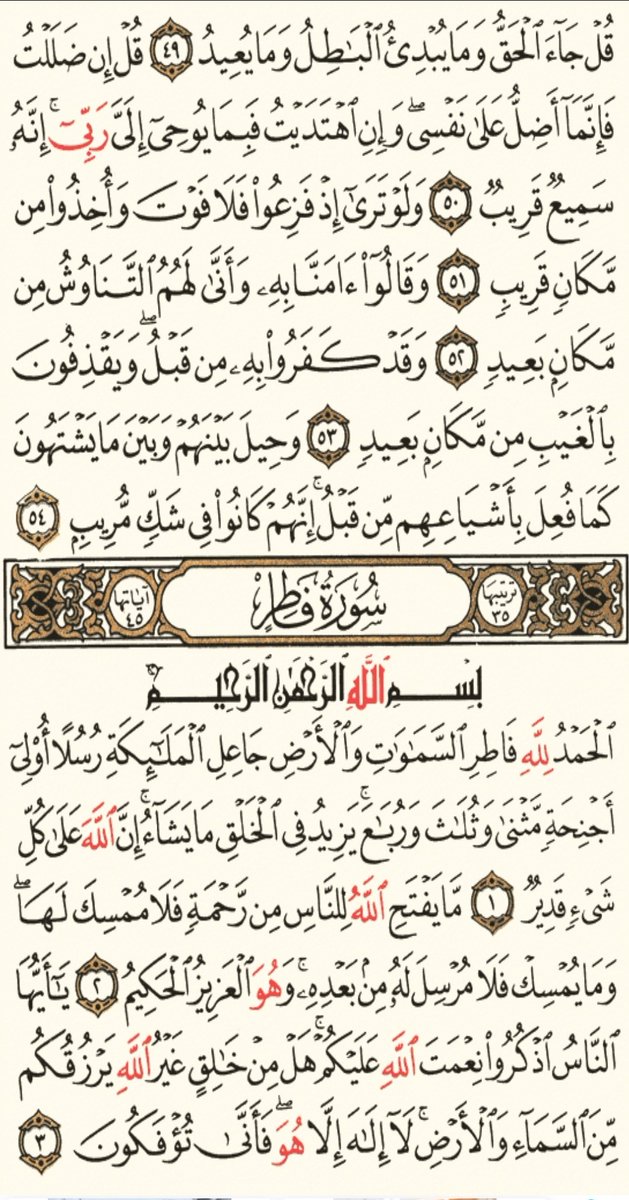 قُلْ جَآءَ ٱلْحَقُّ وَمَا يُبْدِئُ ٱلْبَـٰطِلُ وَمَا يُعِيدُ ٤٩ قُلْ إِن ضَلَلْتُ
فَإِنَّمَآ أَضِلُّ عَلَىٰ نَفْسِى ۖ وَإِنِ ٱهْتَدَيْتُ فَبِمَا يُوحِىٓ إِلَىَّ رَبِّىٓ ۚ إِنَّهُۥ
سَمِيعٌ قَرِيبٌ ٥٠ وَلَوْ تَرَىٰٓ إِذْ فَزِعُوا۟ فَلَا فَوْتَ وَأُخِذُوا۟ مِن
مَّكَانٍ قَرِيبٍ ٥١ وَقَالُوٓا۟ ءَامَنَّا بِهِۦ وَأَنَّىٰ لَهُمُ ٱلتَّنَاوُشُ مِن
مَّكَانٍۭ بَعِيدٍ ٥٢ وَقَدْ كَفَرُوا۟ بِهِۦ مِن قَبْلُ ۖ وَيَقْذِفُونَ
بِٱلْغَيْبِ مِن مَّكَانٍۭ بَعِيدٍ ٥٣ وَحِيلَ بَيْنَهُمْ وَبَيْنَ مَا يَشْتَهُونَ
كَمَا فُعِلَ بِأَشْيَاعِهِم مِّن قَبْلُ ۚ إِنَّهُمْ كَانُوا۟ فِى شَكٍّ مُّرِيبٍۭ ٥٤
ترتيبها ٣٥ سُورَةُ فَاطِرٍ آيَاتها ٤٥
بِسْمِ ٱللَّهِ ٱلرَّحْمَـٰنِ ٱلرَّحِيمِ
ٱلْحَمْدُ لِلَّهِ فَاطِرِ ٱلسَّمَـٰوَٰتِ وَٱلْأَرْضِ جَاعِلِ ٱلْمَلَـٰٓئِكَةِ رُسُلًا أُو۟لِىٓ
أَجْنِحَةٍ مَّثْنَىٰ وَثُلَـٰثَ وَرُبَـٰعَ ۚ يَزِيدُ فِى ٱلْخَلْقِ مَا يَشَآءُ ۚ إِنَّ ٱللَّهَ عَلَىٰ كُلِّ
شَىْءٍ قَدِيرٌ ١ مَّا يَفْتَحِ ٱللَّهُ لِلنَّاسِ مِن رَّحْمَةٍ فَلَا مُمْسِكَ لَهَا ۖ
وَمَا يُمْسِكْ فَلَا مُرْسِلَ لَهُۥ مِنۢ بَعْدِهِۦ ۚ وَهُوَ ٱلْعَزِيزُ ٱلْحَكِيمُ ٢ يَـٰٓأَيُّهَا
ٱلنَّاسُ ٱذْكُرُوا۟ نِعْمَتَ ٱللَّهِ عَلَيْكُمْ ۚ هَلْ مِنْ خَـٰلِقٍ غَيْرُ ٱللَّهِ يَرْزُقُكُم
مِّنَ ٱلسَّمَآءِ وَٱلْأَرْضِ ۚ لَآ إِلَـٰهَ إِلَّا هُوَ ۖ فَأَنَّىٰ تُؤْفَكُونَ ٣